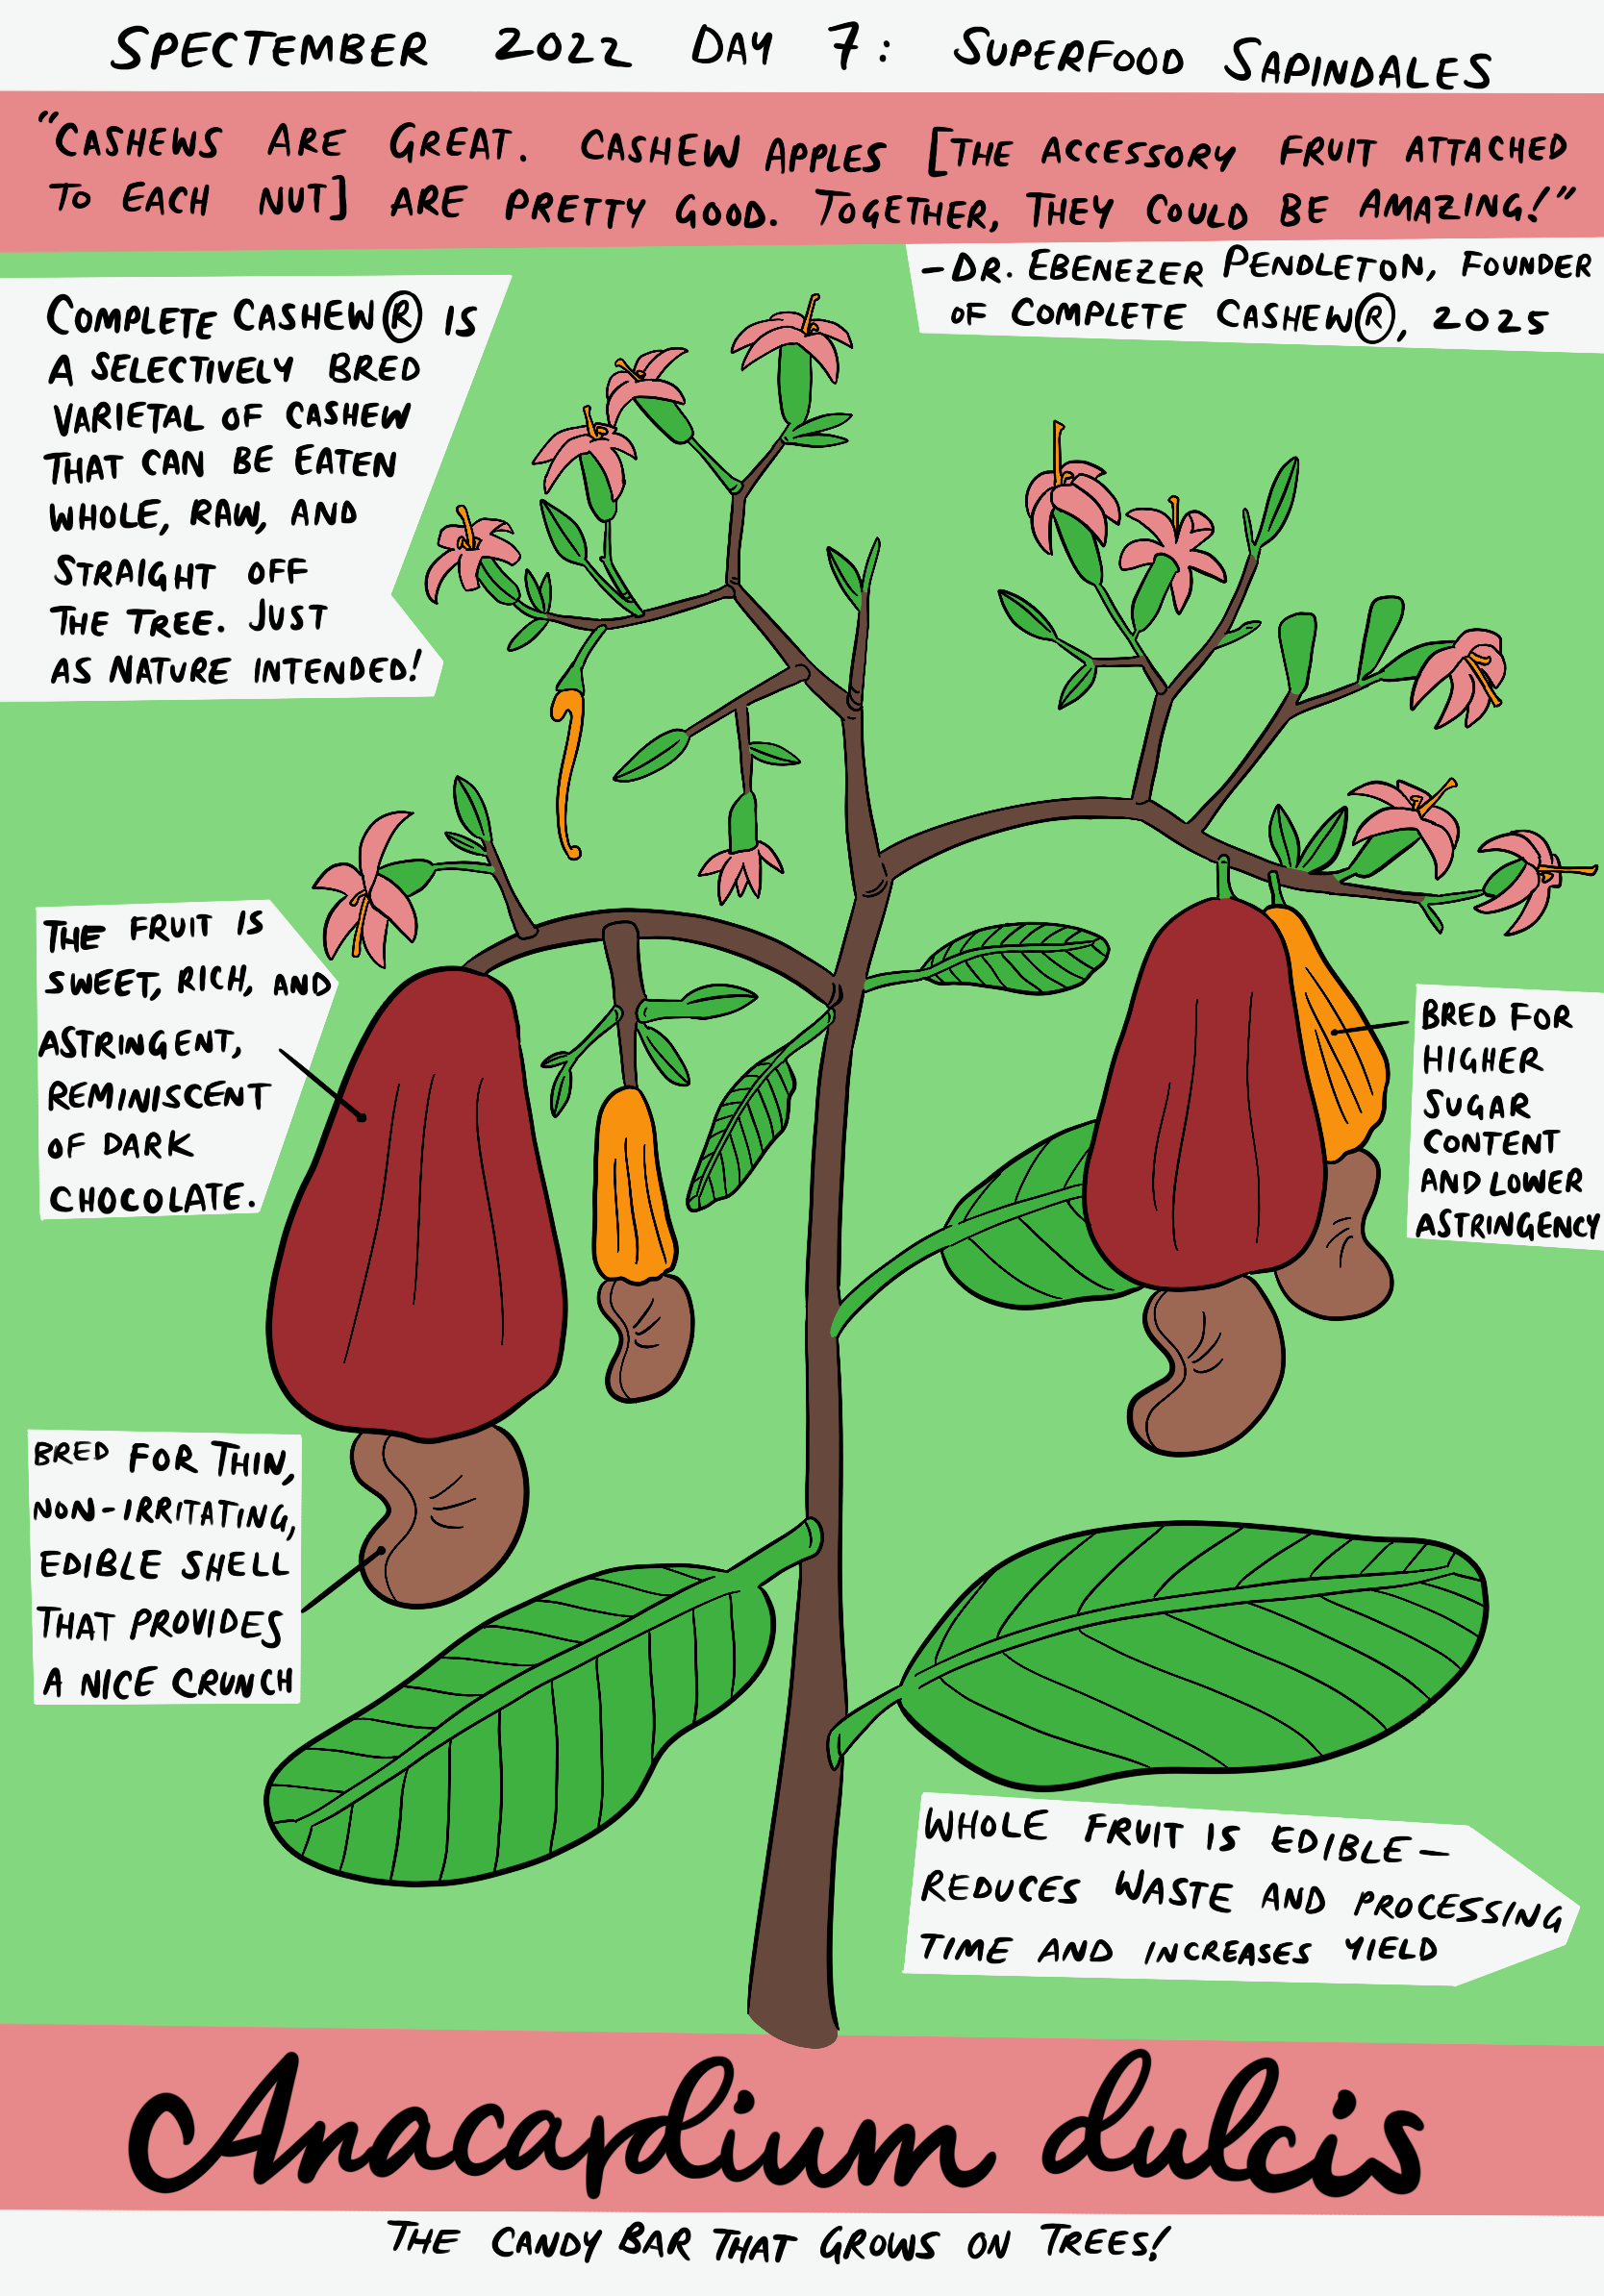 SPECTEMBER 2022 DAY 7: SUPERFOOD SAPINDALES
"CASHEWS ARE GREAT. CASHEW APPLES [THE ACCESSORY FRUIT ATTACHED
TO EACH NUT] ARE PRETTY GOOD. TOGETHER, THEY COULD BE AMAZING!"
-DR. EBENEZER PENDLETON, FOUNDER
OF COMPLETE CASHEW®, 2025
COMPLETE CASHEW® IS
A SELECTIVELY BRED
VARIETAL OF CASHEW
THAT CAN BE EATEN
WHOLE, RAW, AND
STRAIGHT OFF
THE TREE. JUST
AS NATURE INTENDED!
THE FRUIT IS
SWEET, RICH, AND
ASTRINGENT,
REMINISCENT
OF DARK
CHOCOLATE.
BRED FOR
HIGHER
SUGAR
CONTENT
AND LOWER
ASTRINGENCY
BRED FOR THIN,
NON-IRRITATING,
EDIBLE SHELL
THAT PROVIDES
A NICE CRUNCH
WHOLE FRUIT IS EDIBLE—
REDUCES WASTE AND PROCESSING
TIME AND INCREASES YIELD
Anacardium dulcis
THE CANDY BAR THAT GROWS ON TREES!